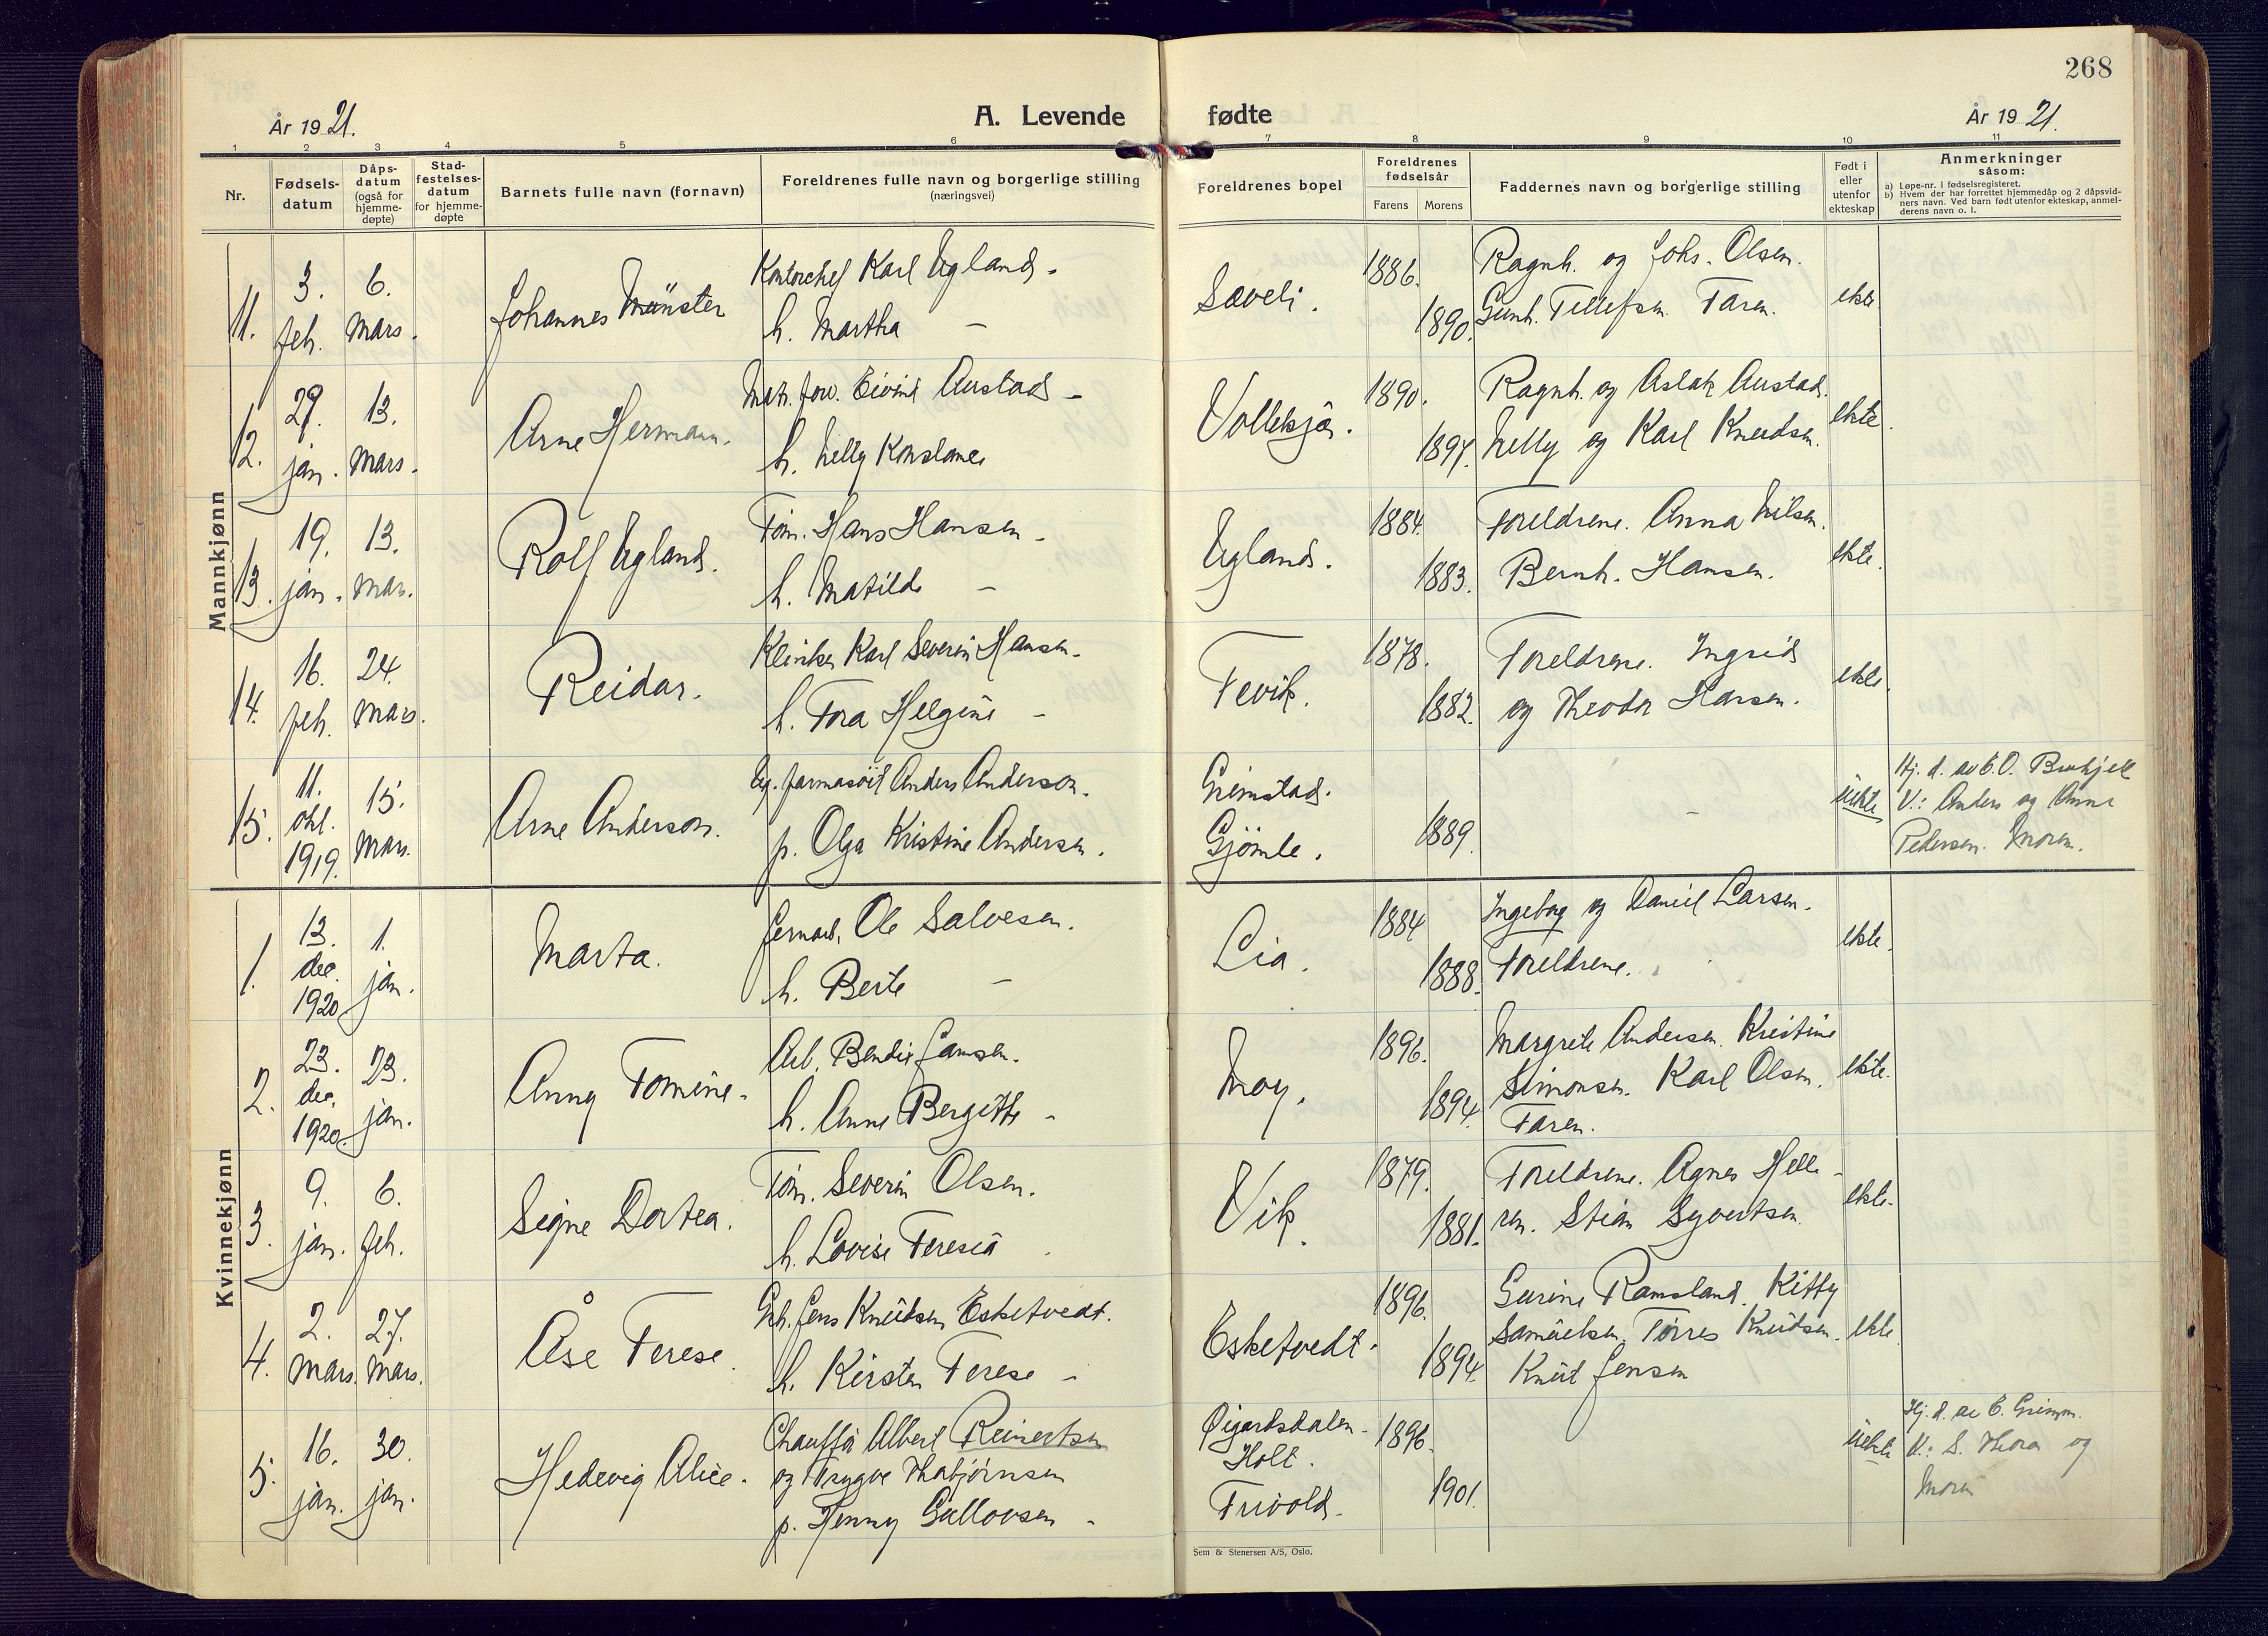 268
År 1921.
A. Levende fødte
År 1921.
1 2 3 4 5 6 7 8 9 10 11
Nr.
Fødsels-
datum
Dåps-
datum
(også for
hjemme-
døpte)
Stad-
festelses-
datum
for hjemme-
døpte
Barnets fulle navn (fornavn)
Foreldrenes fulle navn og borgerlige stilling
(næringsvei)
Foreldrenes bopel
Foreldrenes
fødselsår
Farens Morens
Faddernes navn og borgerlige stilling
Født i
eller
utenfor
ekteskap
Anmerkninger
såsom:
a) Løpe-nr. i fødselsregisteret.
b) Hvem der har forrettet hjemmedåp og 2 dåpsvid-
ners navn. Ved barn født utenfor ekteskap, anmel-
derens navn o. l.
Mannkjønn
11.
3.
feb.
6.
Mars.
Johannes Münster
Kontorchef Karl Ugland -
h. Martha -
Sæveli.
1886.
1890.
Ragnh. og Johs. Olsen.
Gunh. Tellefsen. Faren.
ekte
12.
29.
jan.
13.
Mars.
Arne Hermann.
Eivind Austad -
h. Nelly Konstance
Vollekjær.
1890.
1897.
Ragnh. og Aslak Austad.
Nelly og Karl Knudsen.
ekte.
13.
19.
jan.
13.
Mars.
Rolf Ugland.
Tøm. Hans Hansen -
h. Matilde -
Ugland.
1884.
1883.
Foreldrene. Anna Nilsen.
Bernh. Hansen.
ekte.
14.
16.
feb.
24.
Mars.
Reidar.
Klinker Karl Severin Hansen -
h. Tora Helgine -
Fevik.
1878.
1882.
Foreldrene. Ingrid
og Theodor Hansen.
ekte.
15.
11.
okt.
1919.
15.
Mars.
Arne Anderson.
Ug. farmasöit Anders Anderson.
p. Olga Kristine Andersen.
Grimstad.
Gjømle.
1889.
-
uekte
Hj. d. av
V.: Anders og Anne
Pedersen. Moren.
Kvinnekjønn
1.
13.
dec.
1920
1.
jan.
Marta.
Jernarb. Ole Salvesen.
h. Berte -
Lia.
1884
1888.
Ingeborg og Daniel Larsen.
Foreldrene.
ekte.
2.
23.
dec.
1920.
23.
jan.
Anny Tomine.
Arb. Bendix Jansen.
h. Anne Bergitte -
Moy.
1896.
1894.
Margrete Andersen. Kristine
Simonsen. Karl Olsen.
Faren.
ekte.
3.
9.
jan.
6.
feb.
Signe Dortea.
Tøm. Severin Olsen.
h. Lovise Teresia
Vik.
1879.
1881.
Foreldrene. Agnes Helle-
ren. Stian Syvertsen.
ekte.
4.
2.
Mars.
27.
Mars.
Åse Terese.
Jens Knudsen Esketvedt.
h. Kirsten Terese -
Esketvedt.
1896.
1894.
Gurine Ramsland. Kitty
Samuelsen. Torres Knudsen.
Knut Jensen
ekte
5.
16.
jan.
30.
jan.
Hedevig Alice.
Chauffør Albert Reinertsen
og Trygve Thabjørnsen
p. Henny Gullovsen -
Øigardsdalen -
Holt.
Frivold.
1896.
1901.
uekte
Hj. d. av
V.: S. Thora og
Moren
Sem & Stenersen A/S, Oslo.